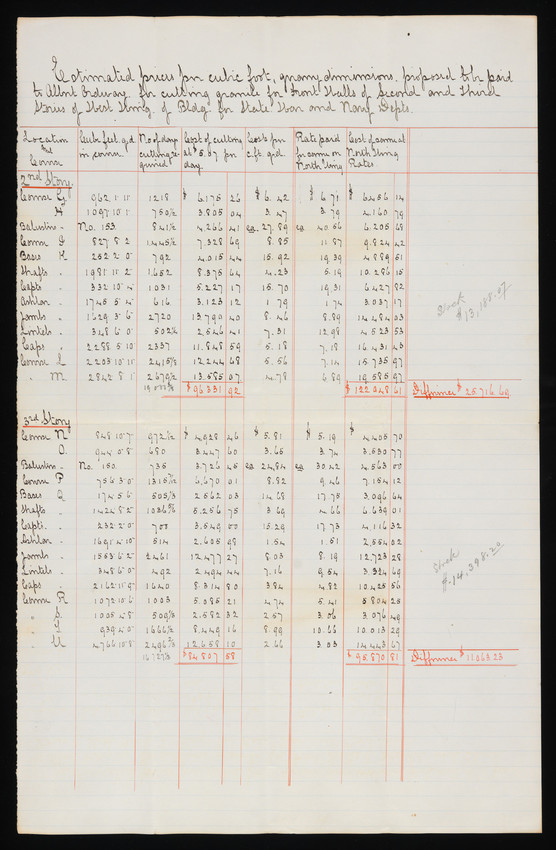 Estimated prices per cubic foot, quarry dimensions, proposed to be paid
to Albert Ordway for cutting granite for Front Walls of Second and Third
Stories of West Wing of Bldg for State War and Navy Depts.
Location and Course | Cubic feet q.d. in course | No of days cutting required | Cost of cutting at $5.07 per day | Costs per c.ft. q.d. | Rate paid for same on North Wing | Cost of same at North Wing Rates
2nd Story.
Course G 962.1.11 1218 $6.175 26 $6.42 $6.71 $6.456 14
H 1097.10.1 750 1/2 3.805 04 3.47 3.79 4.160 79
Balusters - No. 153 841 1/2 4.266 41 ea. 27.89 ea 40.56 6.205 68
Course I 827.8.2 1445 1/2 7.328 69 8.85 11.87 9.824 42
Bases K 252.2.0 792 4.015 44 15.92 19.39 4.889 51
Shafts - 1981.11.2 1.652 8.375 64 4.23 5.19 10.286 15
Capts - 332.10.4 1031 5.227 17 15.70 19.31 6.427 82
Ashlar - 1745.5.4 616 3.123 12 1.79 1.74 3.037 17
Jambs - 1629.3.6 2720 13.790 40 8.46 8.89 14.484 03
Lintels - 348.6.0 502 1/2 2.546 41 7.31 12.98 4.523 53
Caps - 2288.5.10 2337 11.848 59 5.18 7.18 16.431 43
Course L 2203.10.11 2415 1/3 12.244 68 5.56 7.14 15.735 97
" M 2842.8.1 2679 1/2 13.585 07 4.78 6.89 19.585 97
$96331 92 $122.948 61 Difference $25.716.69
Stock $13,188.07
3rd Story
Course N 848.10.7 972 1/2 $4.928 46 $5.81 $5.19 $4.405 70
O. 944.0.8 680 3.447 60 3.65 3.74 3.530 77
Balusters - No. 150. 735 3.726 45 ea 24.84 ea 30.42 4.563 00
Course P 756.3.0 1315 6.670 01 8.82 9.46 7.154 12
Bases Q 174.5.6 505 1/3 2.562 03 14.68 17.75 3.096 64
Shafts - 1422.8.2 1036 5.256 75 3.69 4.66 6.639 01
Capts. - 232.2.0 700 3.549 00 15.29 17.73 4.116 32
Ashlar - 1691.4.10 514 2.605 98 1.54 1.51 2.554 02
Jambs - 1553.6.2 2461 12.477 27 8.03 8.19 12.723 28
Lintels - 348.6.0 492 2.494 44 7.16 9.54 3.324 69
Caps - 2162.11.9 1640 8.314 80 3.84 4.82 10.425 56
Course R 1072.10.6 1003 5.085 21 4.74 5.41 5.804 25
" S 1005.4.8 509 1/3 2.582 32 2.57 3.06 3.076 49
" T 939.4.0 1666 1/2 8.449 16 8.99 10.66 10.013 29
" U 4766.10.8 2496 2/3 12.658 10 2.66 3.03 14.443 67
16727 1/3 $84807 58 $95.870 81 Difference $11063.23
Stock $14,398.20